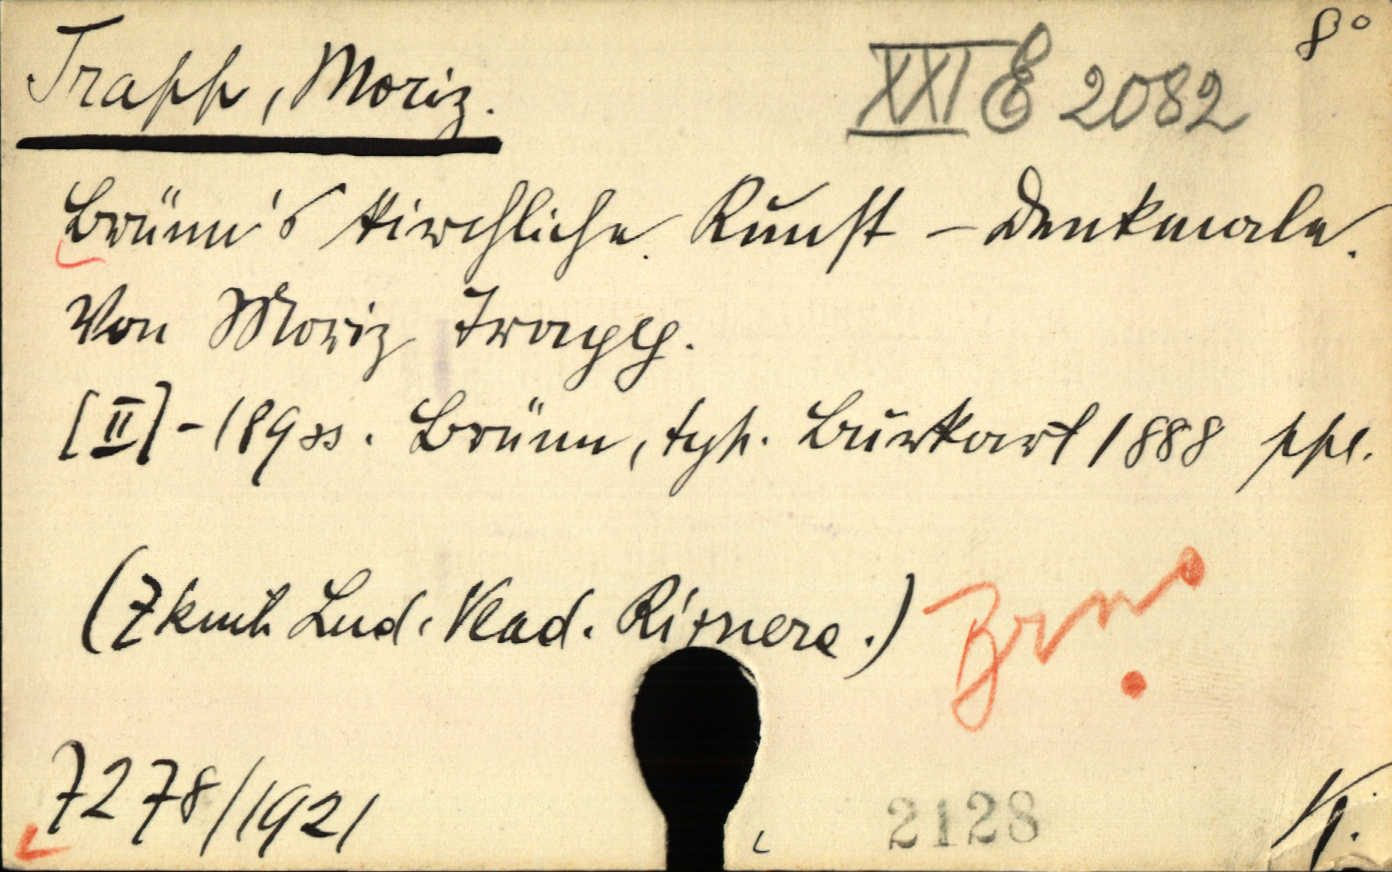 Trapp, Moriz. XXI E 2082 8°
Brünn's kirchliche Kunst-Denkmale.
Von Moriz Trapp.
[II]-189 ss. Brünn, typ. Burkart 1888 ppl.
(Z knih. Lud. Vlad. Riznera.)
Brno
7278/1921
2128